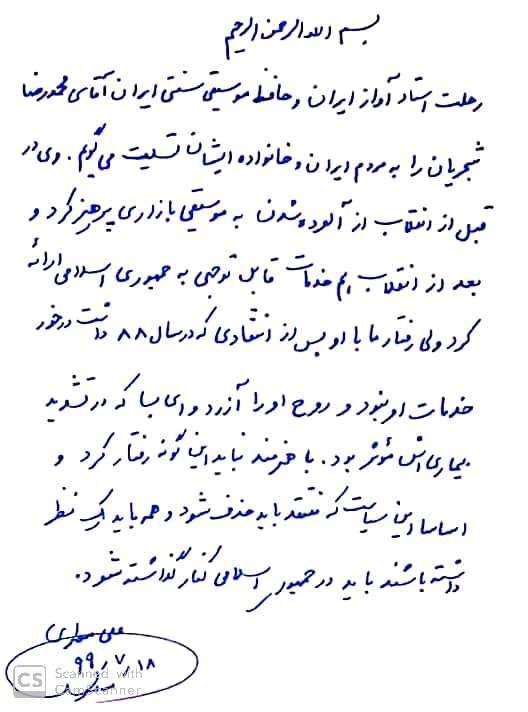 بسم الله الرحمن الرحیم
رحلت استاد آواز ایران و حافظ موسیقی سنتی ایران آقای محمدرضا
شجریان را به مردم ایران و خانواده ایشان تسلیت می گویم. وی در
قبل از انقلاب از آلوده شدن به موسیقی بازاری پرهیز کرد و
بعد از انقلاب هم خدمات قابل توجهی به جمهوری اسلامی ارائه
کرد ولی رفتار ما با او پس از انتقادی که در سال ۸۸ داشت در خور
خدمات او نبود و روح او را آزرد و ای بسا که در تشدید
بیماری اش مؤثر بود. با هنرمند نباید این گونه رفتار کرد و
اساسا این سیاست که منتقد باید حذف شود و همه باید یک نظر
داشته باشند باید در جمهوری اسلامی کنار گذاشته شود.
علی مطهری
۹۹٫۷٫۱۸
CS Scanned with
CamScanner